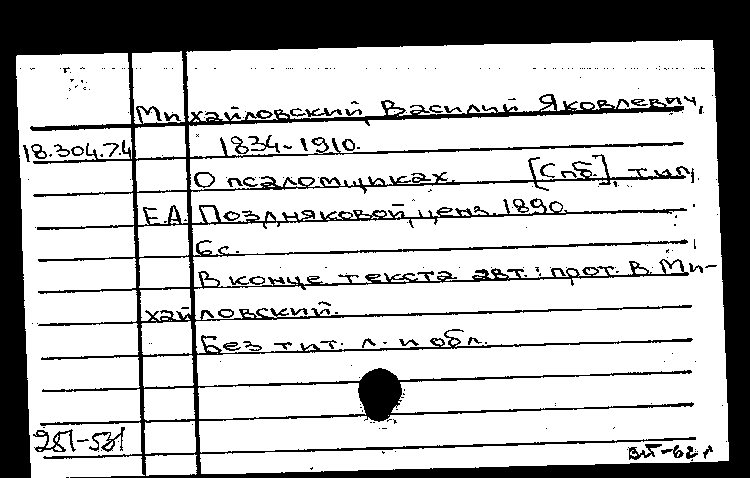 Михайловский, Василий Яковлевич,
18.304.7.4 1834-1910.
О псаломщиках. [Спб.], тип.
Е.А. Поздняковой, ценз. 1890.
6 с.
В конце текста авт.: прот. В. Ми-
хайловский.
Без тит. л. и обл.
281-531